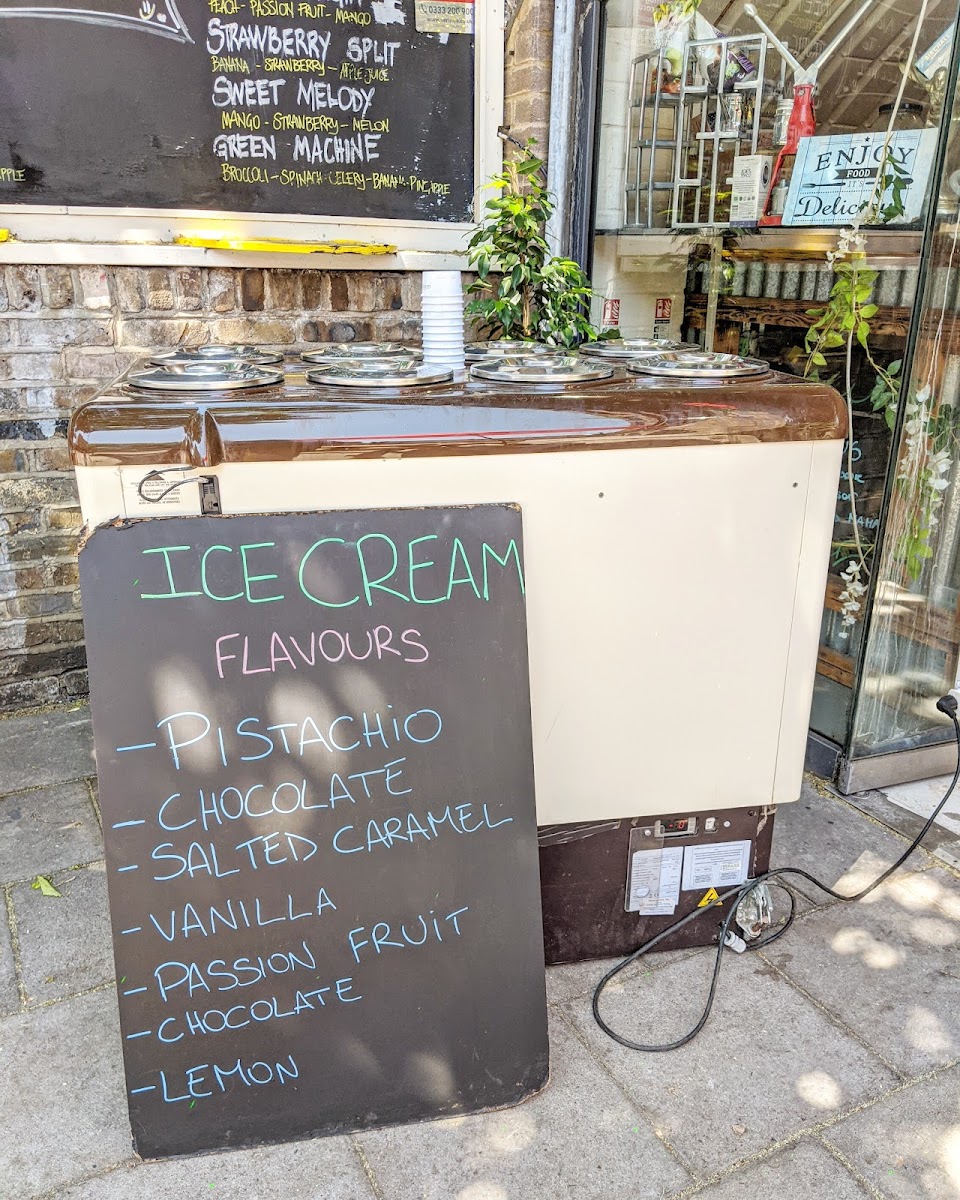 PEACH - PASSION FRUIT - MANGO
STRAWBERRY SPLIT
BANANA - STRAWBERRY - APPLE JUICE
SWEET MELODY
MANGO - STRAWBERRY - MELON
GREEN MACHINE
BROCCOLI - SPINACH - CELERY - BANANA - PINEAPPLE
0333 200 900
ENJOY
FOOD
IT'S
ICE CREAM
FLAVOURS
- PISTACHIO
- CHOCOLATE
- SALTED CARAMEL
- VANILLA
- PASSION FRUIT
- CHOCOLATE
- LEMON